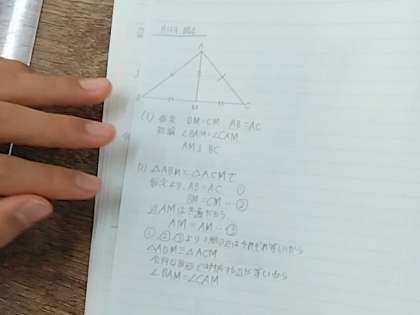 A
B
M
C
(1) 仮定 BM=CM AB=AC
結論 ∠BAM=∠CAM
AM⊥BC
△ABMと△ACMで
仮定より、AB=AC ①
BM=CM…②
AMは共通だから、
AM=AM…③
①②③より3組の辺がそれぞれ等しいから
△ABM≡△ACM
合同な図形で対応する角が等しいから
∠BAM=∠CAM